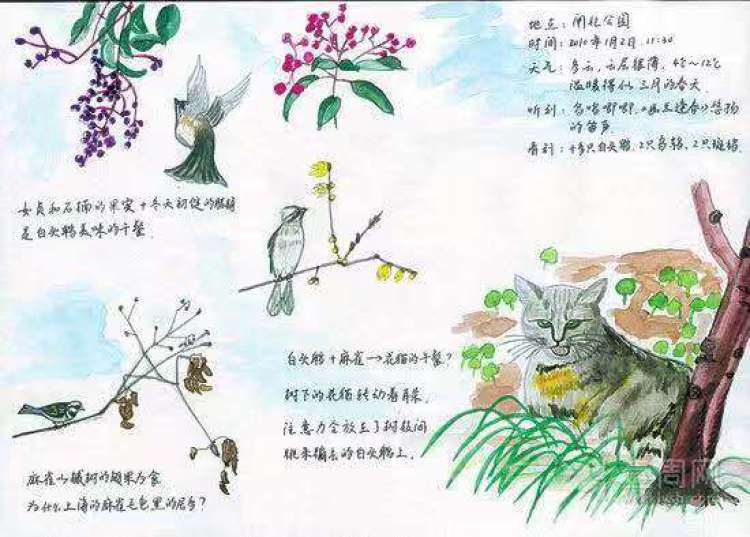 地点：闸北公园
时间：2010年1月2日，11:30
天气：多云，云层很薄，4℃~12℃
温暖得似三月的春天
听到：
的笛声
看到：十多只白头鹎、2只乌鸫、2只斑鸠
女贞和石楠的果实+冬天初绽的腊梅
是白头鹎美味的午餐
白头鹎+麻雀→花猫的午餐？
树下的花猫转动着耳朵
注意力全放在了树枝间
跳来蹦去的白头鹎上
麻雀以槭树的翅果为食
为什么上海的麻雀毛色黑的居多？